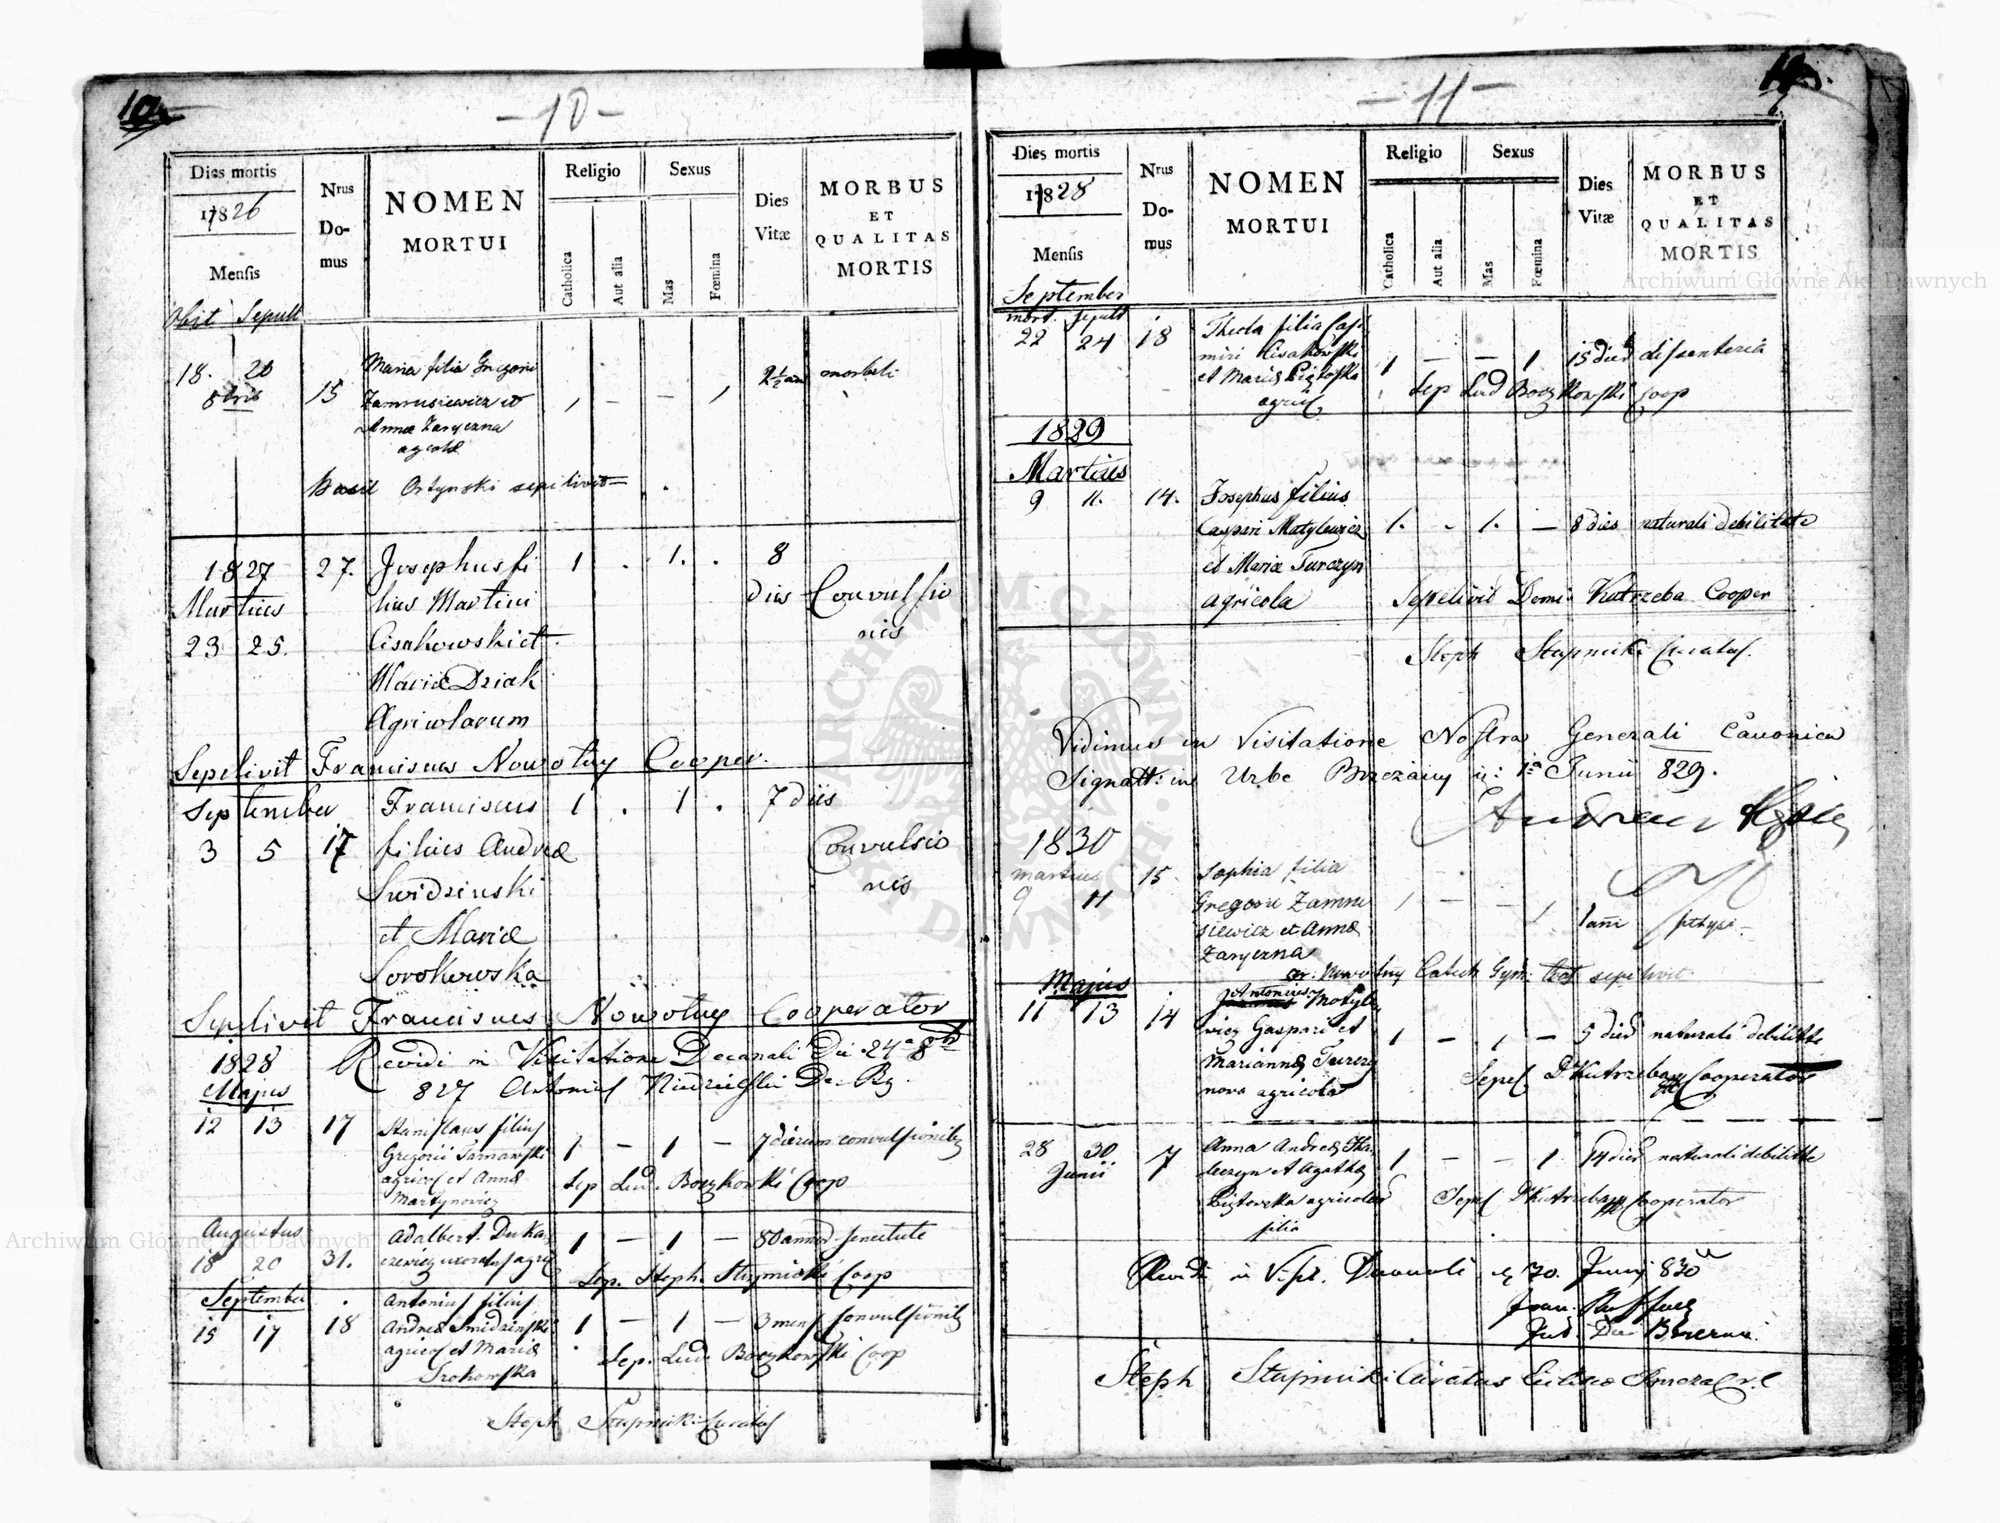 10.
- 10 -
Dies mortis
1826
Mensis
Obiit Sepult
Nrus Domus
NOMEN MORTUI
Religio
Catholica
Aut alia
Sexus
Mas
Fœmina
Dies Vitæ
MORBUS ET QUALITAS MORTIS
18. 20 15 Maria filia Gregorii 1 - - 1 2½ an morbili
8bris Zamrusiewicz et
Annæ Zaryczna
agricolæ
Basil Ortynski sepilivit
1827 27. Josephus fi 1 . 1. . 8
Martius lius Martini dies Convulsio
23 25. Cisakowski et nis
Mariæ Dziak
Agricolarum
Sepelivit Franciscus Nowotny Cooper.
September Franciscus 1 . 1 . 7 diis
3 5 17 filius Andreæ Convulsio
Swidzinski nis
et Mariæ
Sorokowska
Sepelivit Franciscus Nowotny Cooperator
1828 Revidi in Visitatione Decanali Die 24a 8bris
Majus 827 Antonius
12 13 17 Stanislaus filius 1 - 1 - 7 dierum convulsionibus
Gregorii Tarnawski
agricol et Annæ Sep Lud. Boczkowski Coop
Martynowicz
Augustus Adalbert. Duka 1 - 1 - 80 annor senectute
18 20 31. czewicz uxoratus agric
Sep. Steph. Stupnicki Coop
September Antonius filius
15 17 18 Andreæ Smidzinski 1 - 1 - 3 mens convulsionib
agricol et Mariæ Sep. Lud. Boczkowski Coop
Srokowska
Steph Stupnicki Curatus
- 11 -
Dies mortis
1828
Mensis
September
mort. sepult
Nrus Domus
NOMEN MORTUI
Religio
Catholica
Aut alia
Sexus
Mas
Fœmina
Dies Vitæ
MORBUS ET QUALITAS MORTIS
22 24 18 Thecla filia Casi
miri Cisakowski 1 - - 1 15 dier dissenteria
et Mariæ Piątoska Sep Lud Boczkowski Coop
agric
1829
Martius
9 11. 14. Josephus filius
Caspari Matylewicz 1. . 1. - 8 dies naturali debilitate
et Mariæ Turczyn
agricola Sepelivit Domi Kutrzeba Cooper
Steph Stupnicki Curatus.
Vidimus in Visitatione Nostra Generali Canonica
Signatt: in Urbe Brzezany 1a Junii 829.
1830
martius 15 Sophia filia
9 11 Gregorii Zamru 1 - - 1 1 ani pthysi
siewicz et Annæ
Zaryczna
Nowotny Catech Gym: sepelivit
Majus Antonius Motyle
11 13 14 wicz Gaspari et 1 - 1 - 5 dier naturali debilitte
Mariannæ Turczy Sepel D Kutrzeba Cooperator
nova agricolæ
28 30 7 Anna Andreæ 1 - - 1 14 dier naturali debilitte
Junii leczyn et Agathæ
Piątoszka agricolæ Sepel D Kutrzeba Cooperator
filia
Revidi in Visit. Decanali 30. Junij 830
Steph Stupnicki Curatus
Archiwum Główne Akt Dawnych
Archiwum Główne Akt Dawnych
ARCHIWUM GŁÓWNE AKT DAWNYCH